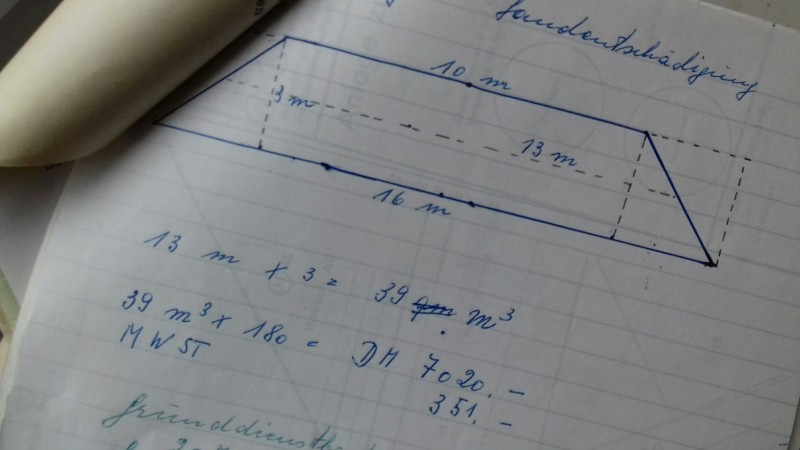 en
Landentschädigung
10 m
3 m
13 m
16 m
13 m x 3 = 39 qm m³
39 m³ x 180 = DM 7020.-
MWST 351.-